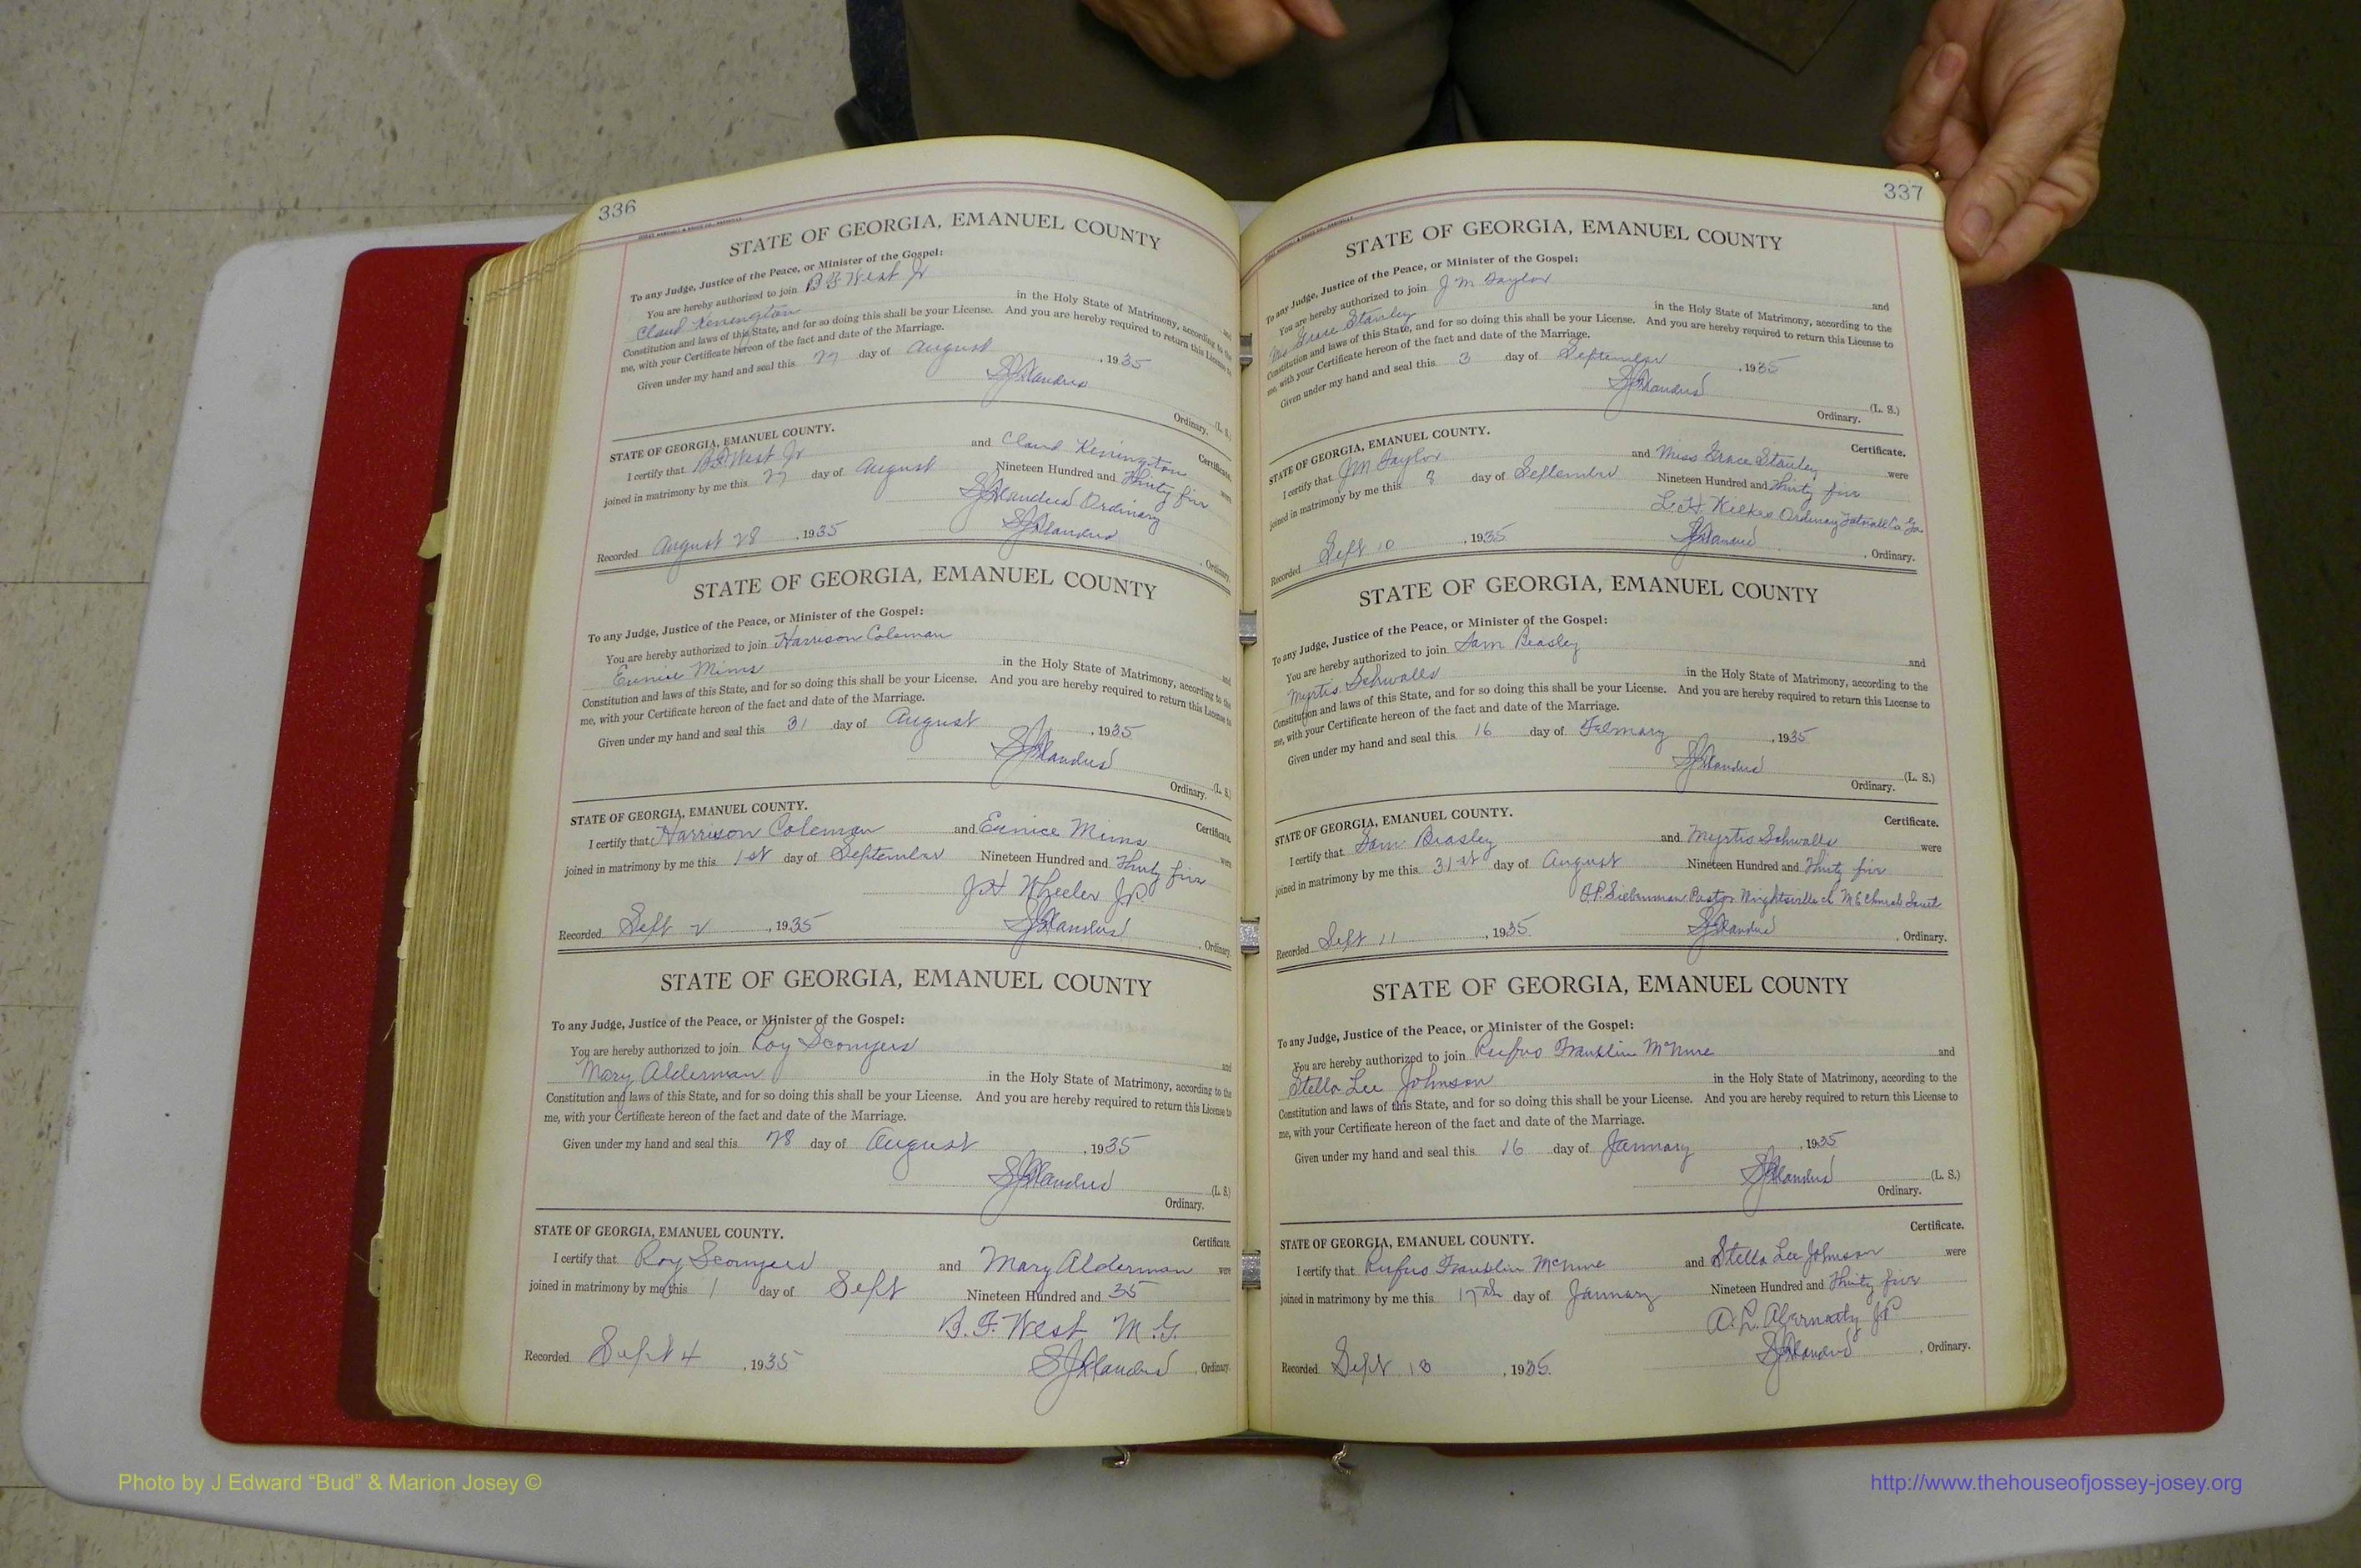 336
STATE OF GEORGIA, EMANUEL COUNTY
To any Judge, Justice of the Peace, or Minister of the Gospel:
You are hereby authorized to join B F West Jr and
Claud Kenington in the Holy State of Matrimony, according to the
Constitution and laws of this State, and for so doing this shall be your License. And you are hereby required to return this License to
me, with your Certificate hereon of the fact and date of the Marriage.
Given under my hand and seal this 27 day of August , 1935
(L. S.)
Ordinary.
STATE OF GEORGIA, EMANUEL COUNTY. Certificate.
I certify that B F West Jr and Claud Kenington were
joined in matrimony by me this 27 day of August Nineteen Hundred and Thirty five
Ordinary
Recorded August 28 , 1935 , Ordinary.
STATE OF GEORGIA, EMANUEL COUNTY
To any Judge, Justice of the Peace, or Minister of the Gospel:
You are hereby authorized to join Harrison Coleman and
Eunice Mims in the Holy State of Matrimony, according to the
Constitution and laws of this State, and for so doing this shall be your License. And you are hereby required to return this License to
me, with your Certificate hereon of the fact and date of the Marriage.
Given under my hand and seal this 31 day of August , 1935
(L. S.)
Ordinary.
STATE OF GEORGIA, EMANUEL COUNTY. Certificate.
I certify that Harrison Coleman and Eunice Mims were
joined in matrimony by me this 1st day of September Nineteen Hundred and Thirty five
J H Wheeler J.P.
Recorded Sept 2 , 1935 , Ordinary.
STATE OF GEORGIA, EMANUEL COUNTY
To any Judge, Justice of the Peace, or Minister of the Gospel:
You are hereby authorized to join Roy Scomyers and
Mary Alderman in the Holy State of Matrimony, according to the
Constitution and laws of this State, and for so doing this shall be your License. And you are hereby required to return this License to
me, with your Certificate hereon of the fact and date of the Marriage.
Given under my hand and seal this 28 day of August , 1935
(L. S.)
Ordinary.
STATE OF GEORGIA, EMANUEL COUNTY. Certificate.
I certify that Roy Scomyers and Mary Alderman were
joined in matrimony by me this 1 day of Sept Nineteen Hundred and 35
B. F. West M. G.
Recorded Sept 4 , 1935 , Ordinary.
337
STATE OF GEORGIA, EMANUEL COUNTY
To any Judge, Justice of the Peace, or Minister of the Gospel:
You are hereby authorized to join J M Taylor and
Miss Grace Stanley in the Holy State of Matrimony, according to the
Constitution and laws of this State, and for so doing this shall be your License. And you are hereby required to return this License to
me, with your Certificate hereon of the fact and date of the Marriage.
Given under my hand and seal this 3 day of September , 1935
(L. S.)
Ordinary.
STATE OF GEORGIA, EMANUEL COUNTY. Certificate.
I certify that J M Taylor and Miss Grace Stanley were
joined in matrimony by me this 8 day of September Nineteen Hundred and Thirty five
L. H. Wilkes Ordinary Tatnall Co Ga
Recorded Sept 10 , 1935 , Ordinary.
STATE OF GEORGIA, EMANUEL COUNTY
To any Judge, Justice of the Peace, or Minister of the Gospel:
You are hereby authorized to join Sam Beasley and
Myrtis Schwalls in the Holy State of Matrimony, according to the
Constitution and laws of this State, and for so doing this shall be your License. And you are hereby required to return this License to
me, with your Certificate hereon of the fact and date of the Marriage.
Given under my hand and seal this 16 day of February , 1935
(L. S.)
Ordinary.
STATE OF GEORGIA, EMANUEL COUNTY. Certificate.
I certify that Sam Beasley and Myrtis Schwalls were
joined in matrimony by me this 31st day of August Nineteen Hundred and Thirty five
Pastor Wrightsville M E Church
Recorded Sept 11 , 1935. , Ordinary.
STATE OF GEORGIA, EMANUEL COUNTY
To any Judge, Justice of the Peace, or Minister of the Gospel:
You are hereby authorized to join Rufus Franklin and
Stella Lee Johnson in the Holy State of Matrimony, according to the
Constitution and laws of this State, and for so doing this shall be your License. And you are hereby required to return this License to
me, with your Certificate hereon of the fact and date of the Marriage.
Given under my hand and seal this 16 day of January , 1935
(L. S.)
Ordinary.
STATE OF GEORGIA, EMANUEL COUNTY. Certificate.
I certify that Rufus Franklin and Stella Lee Johnson were
joined in matrimony by me this 17th day of January Nineteen Hundred and Thirty five
J.P.
Recorded Sept , 1935. , Ordinary.
Photo by J Edward “Bud” & Marion Josey ©
http://www.thehouseofjossey-josey.org